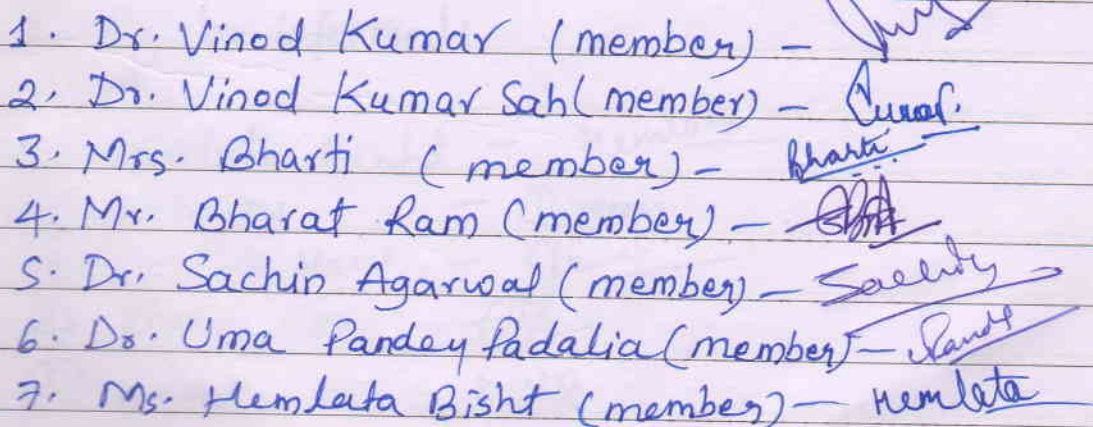 1. Dr. Vinod Kumar (member) -
2. Dr. Vinod Kumar Sah (member) -
3. Mrs. Bharti (member) - Bharti
4. Mr. Bharat Ram (member) -
5. Dr. Sachin Agarwal (member) -
6. Dr. Uma Pandey Padalia (member) -
7. Ms. Hemlata Bisht (member) - Hemlata